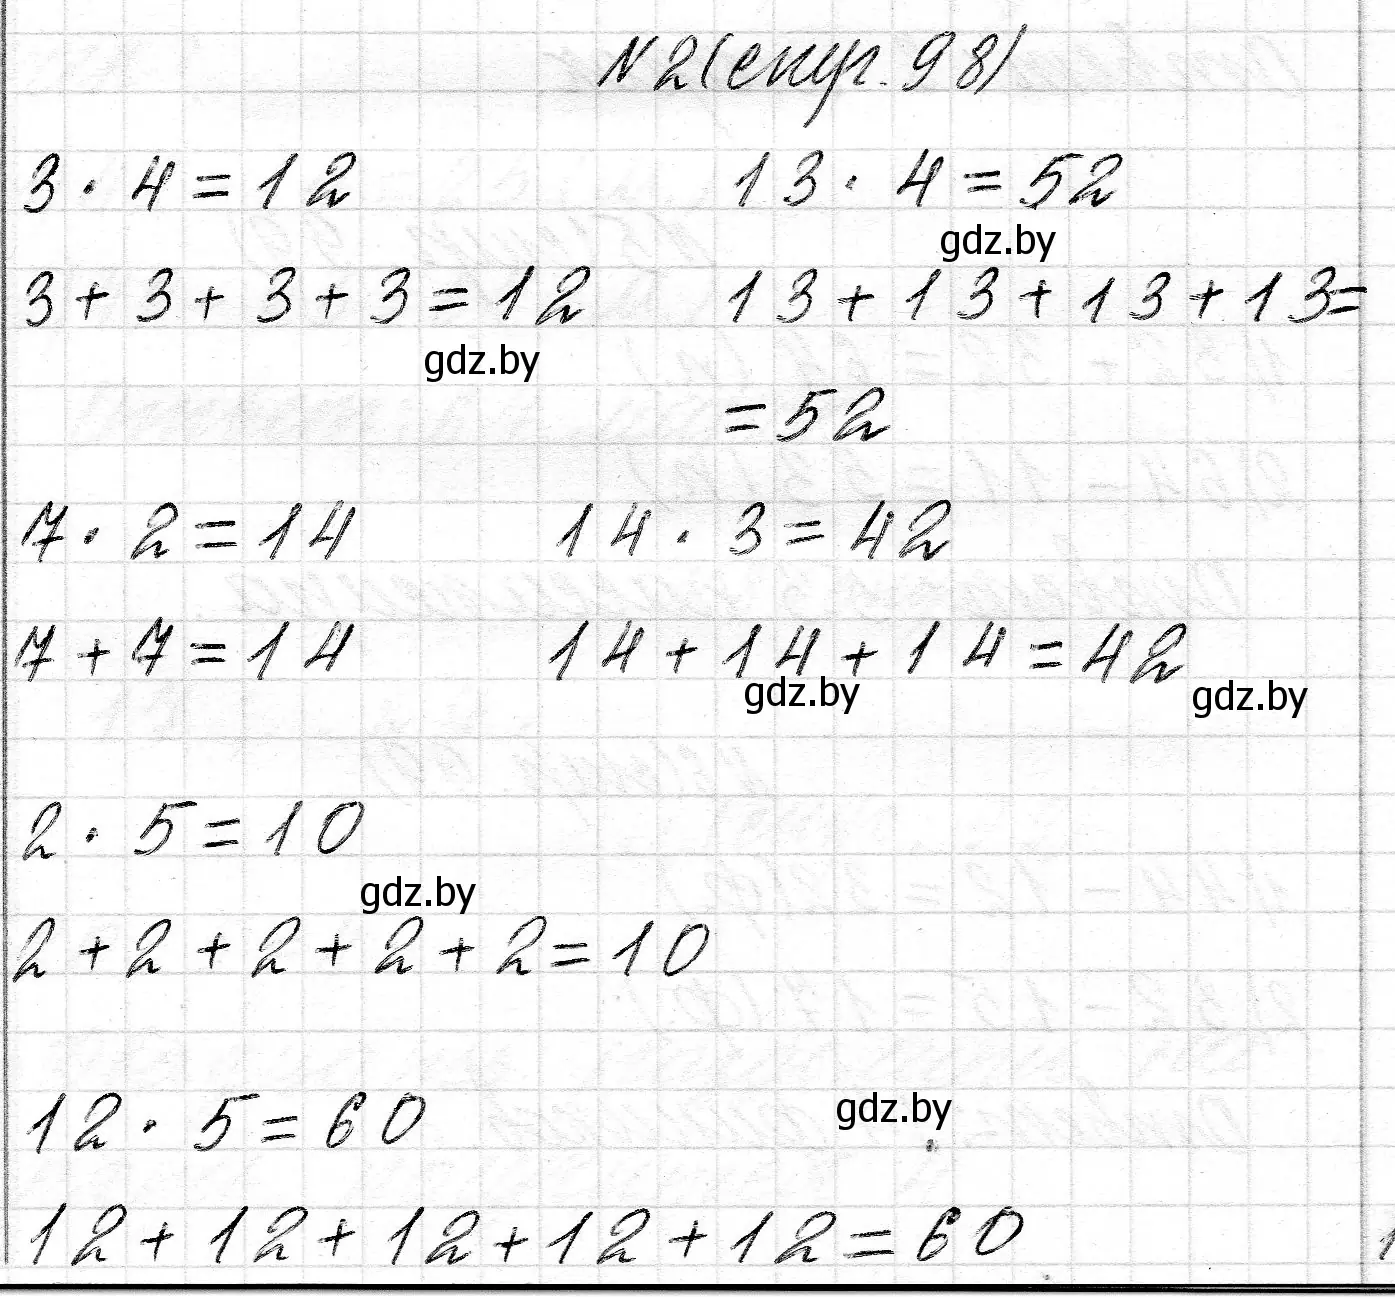 N2(стр. 98)
3 · 4 = 12
13 · 4 = 52
gdz.by
3 + 3 + 3 + 3 = 12
13 + 13 + 13 + 13 =
gdz.by
= 52
7 · 2 = 14
14 · 3 = 42
7 + 7 = 14
14 + 14 + 14 = 42
gdz.by
gdz.by
2 · 5 = 10
gdz.by
2 + 2 + 2 + 2 + 2 = 10
12 · 5 = 60
gdz.by
12 + 12 + 12 + 12 + 12 = 60